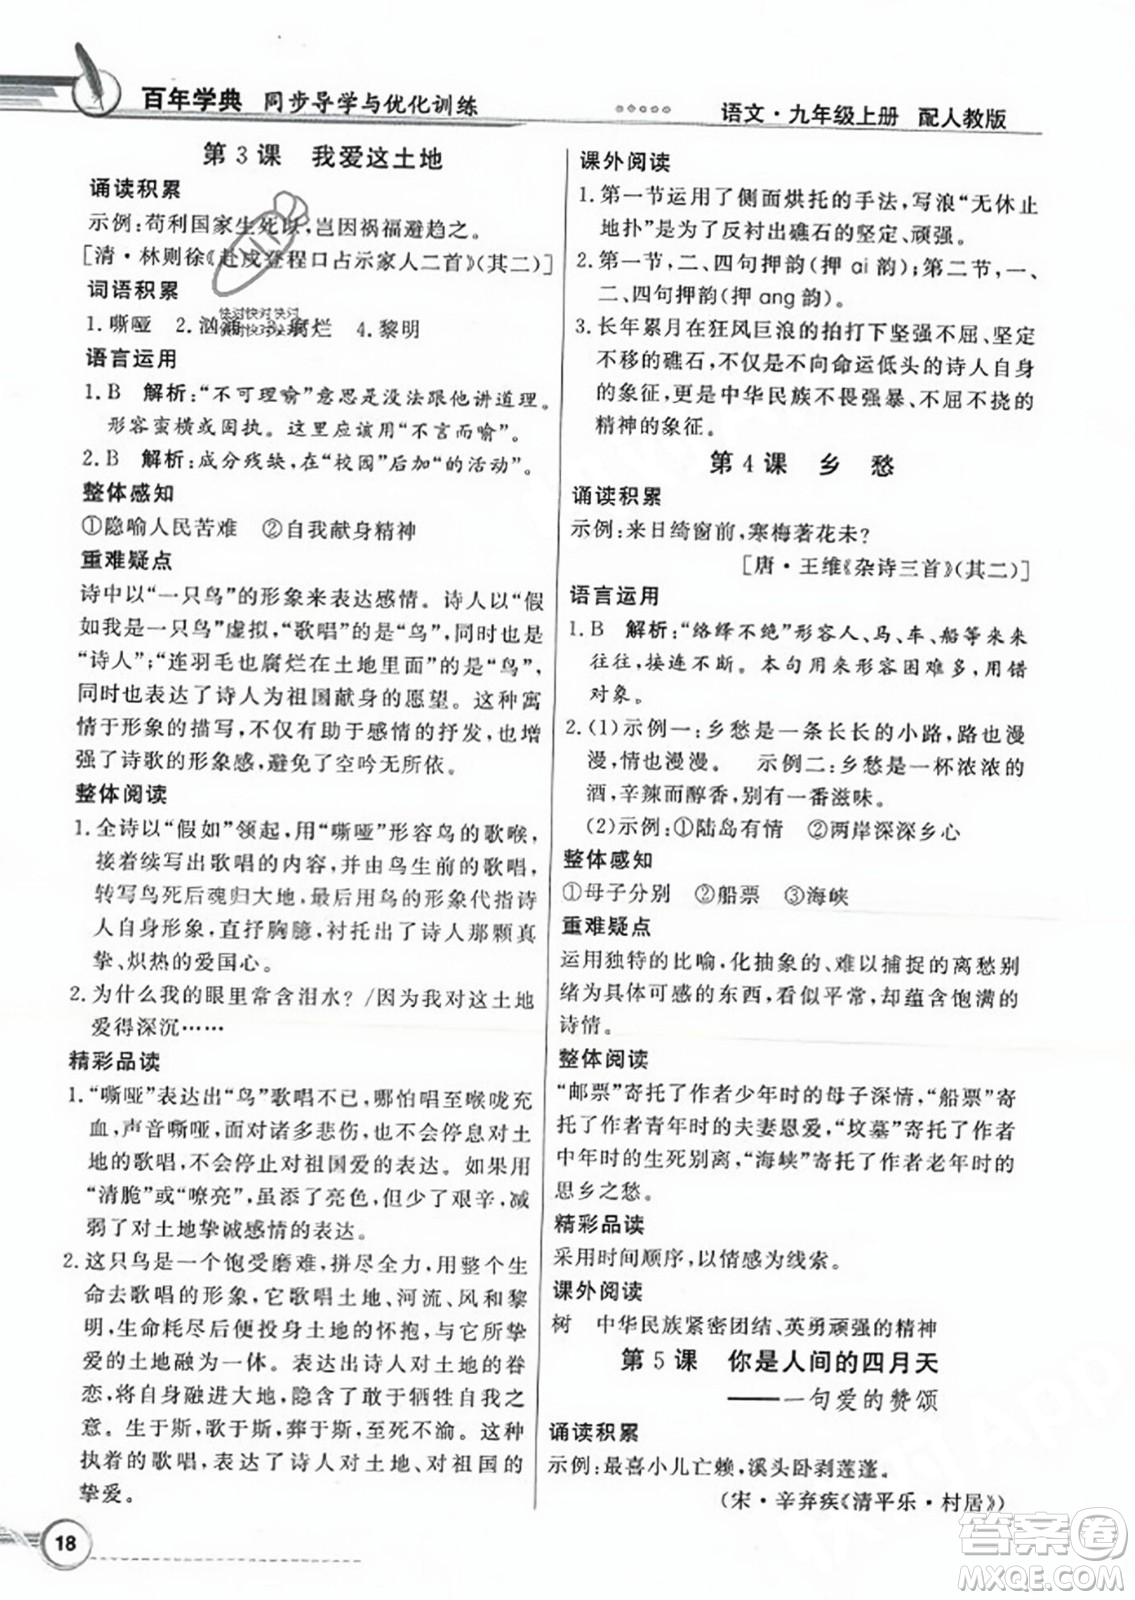 百年学典 同步导学与优化训练
语文·九年级上册 配人教版
第3课 我爱这土地
诵读积累
示例:苟利国家生死以,岂因祸福避趋之。
[清·林则徐《赴戍登程口占示家人二首》(其二)]
词语积累
1. 嘶哑 2. 汹涌 3. 腐烂 4. 黎明
快对快对快对
快对快对快对
语言运用
1. B 解析:“不可理喻”意思是没法跟他讲道理。
形容蛮横或固执。这里应该用“不言而喻”。
2. B 解析:成分残缺,在“校园”后加“的活动”。
整体感知
①隐喻人民苦难 ②自我献身精神
重难疑点
诗中以“一只鸟”的形象来表达感情。诗人以“假
如我是一只鸟”虚拟,“歌唱”的是“鸟”,同时也是
“诗人”;“连羽毛也腐烂在土地里面”的是“鸟”,
同时也表达了诗人为祖国献身的愿望。这种寓
情于形象的描写,不仅有助于感情的抒发,也增
强了诗歌的形象感,避免了空吟无所依。
整体阅读
1. 全诗以“假如”领起,用“嘶哑”形容鸟的歌喉,
接着续写出歌唱的内容,并由鸟生前的歌唱,
转写鸟死后魂归大地,最后用鸟的形象代指诗
人的自身形象,直抒胸臆,衬托出了诗人那颗真
挚、炽热的爱国心。
2. 为什么我的眼里常含泪水?/因为我对这土地
爱得深沉……
精彩品读
1. “嘶哑”表达出“鸟”歌唱不已,哪怕唱至喉咙充
血,声音嘶哑,面对诸多悲伤,也不会停息对土
地的歌唱,不会停止对祖国爱的表达。如果用
“清脆”或“嘹亮”,虽添了亮色,但少了艰辛,减
弱了对土地挚诚感情的表达。
2. 这只鸟是一个饱受磨难,拼尽全力用整个生
命去歌唱的形象,它歌唱土地、河流、风和黎
明,生命耗尽后便投身土地的怀抱,与它所挚
爱的土地融为一体。表达出诗人对土地的眷
恋,将自身融入大地,隐含了敢于牺牲自我之
意。生于斯,歌于斯,葬于斯,至死不渝。通过对
鸟的歌唱,写出了诗人对土地、对祖国的
挚爱。
课外阅读
1. 第一节运用了侧面烘托的手法,写浪“无休止
地扑”是为了反衬出礁石的坚定、顽强。
2. 第一节,二、四句押韵(押 ai 韵);第二节,一、
二、四句押韵(押 ang 韵)。
3. 长年累月在狂风巨浪的拍打下坚强不屈、坚定
不移的礁石,不仅是不向命运低头的诗人自身
的象征,更是中华民族不畏强暴、不屈不挠的
精神的象征。
第4课 乡 愁
诵读积累
示例:来日绮窗前,寒梅著花未?
[唐·王维《杂诗三首》(其二)]
语言运用
1. B 解析:“络绎不绝”形容人、马、车、船等来来
往往,接连不断。本句用来形容困难多,用错
对象。
2. (1)示例一:乡愁是一条长长的小路,路也漫
漫,情也漫漫。 示例二:乡愁是一杯浓浓的
酒,辛辣而醇香,别有一番滋味。
(2)示例:①陆岛有情 ②两岸深深乡心
整体感知
①母子分别 ②船票 ③海峡
重难疑点
运用独特的比喻,化抽象的、难以捕捉的离愁别
绪为具体可感的东西,看似平常,却蕴含饱满的
诗情。
整体阅读
“邮票”寄托了作者少年时的母子深情,“船票”寄
托了作者青年时的夫妻恩爱,“坟墓”寄托了作者
中年时的生死别离,“海峡”寄托了作者老年时的
思乡之愁。
精彩品读
采用时间顺序,以情感为线索。
课外阅读
树 中华民族紧密团结、英勇顽强的精神
第5课 你是人间的四月天
——一句爱的赞颂
诵读积累
示例:最喜小儿亡赖,溪头卧剥莲蓬。
(宋·辛弃疾《清平乐·村居》)
18
答案圈
MXQE.COM